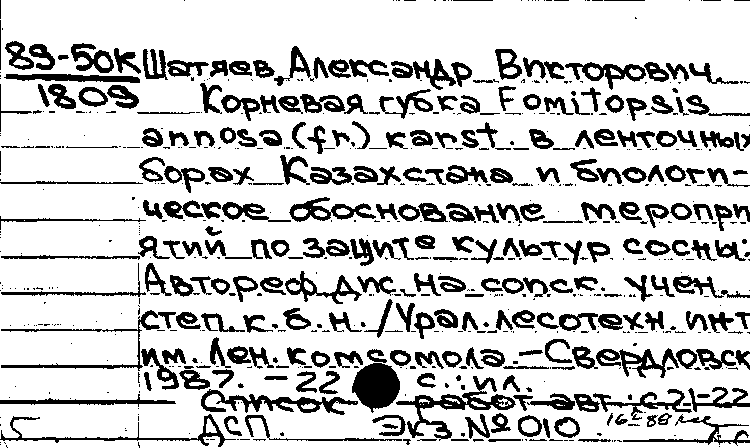 89-50К Шатяев, Александр Викторович.
1809 Корневая губка Fomitopsis
annosa (fr.) karst. в ленточных
борах Казахстана и биологи-
ческое обоснование меропри
ятий по защите культур сосны:
Автореф дис. на соиск. учен.
степ. к. б. н. / Урал. лесотехн. инт
им. Лен. комсомола. - Свердловск
1987. - 22 с. : ил.
Список работ авт.: с. 21-22
ДСП. Экз. № 010.